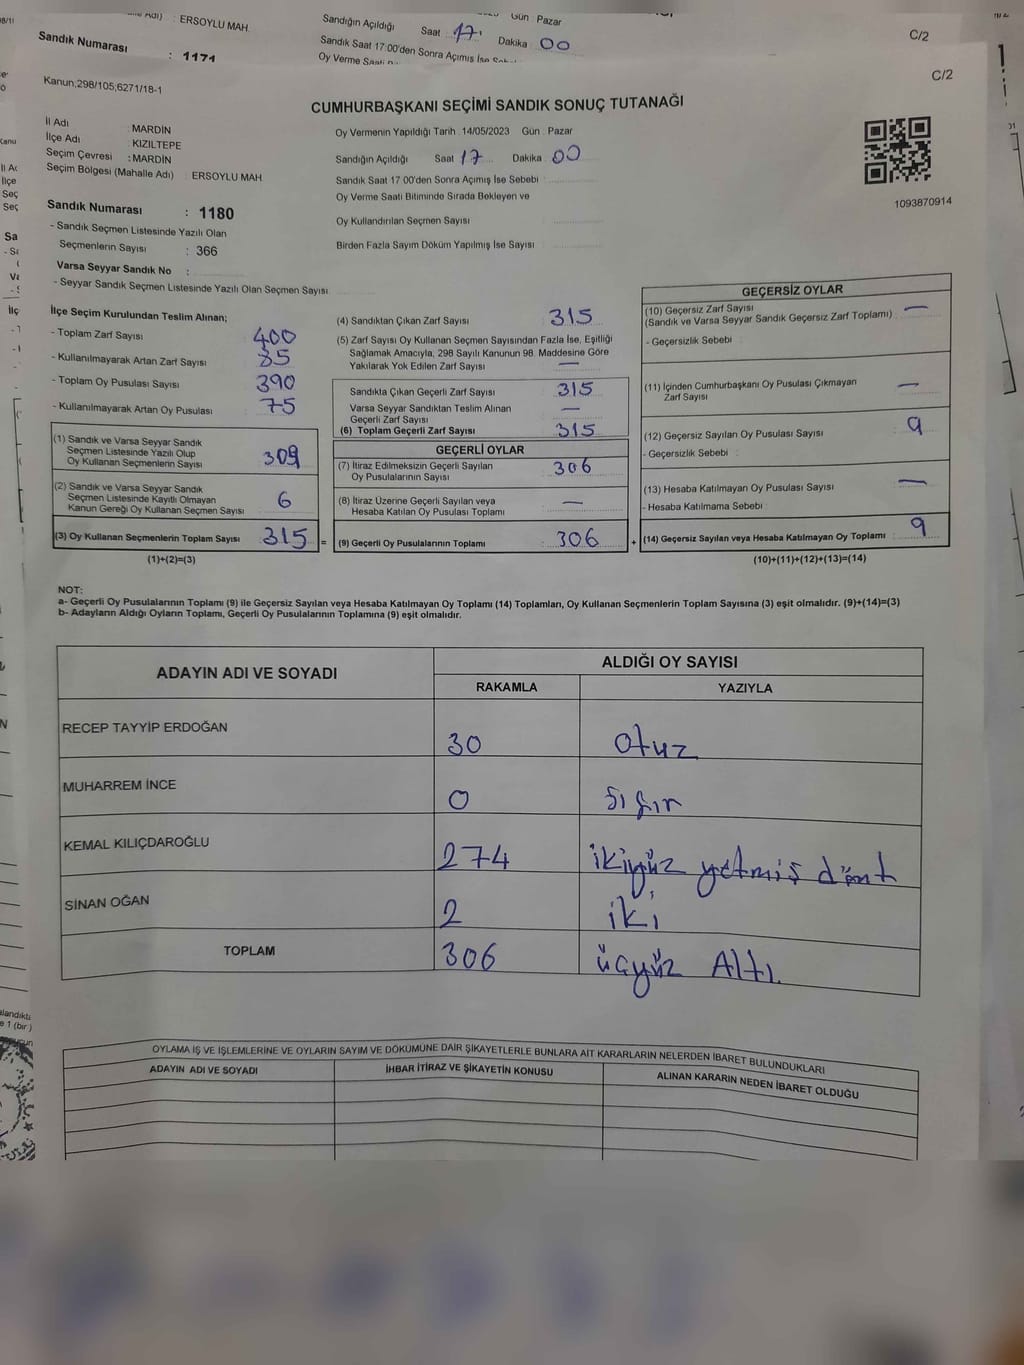 ERSOYLU MAH.
Sandığın Açıldığı Saat 17 Dakika 00
Gün Pazar
C/2
Sandık Numarası : 1171
Sandık Saat 17:00'den Sonra Açımış İse
Oy Verme
Kanun;298/105;6271/18-1
C/2
CUMHURBAŞKANI SEÇİMİ SANDIK SONUÇ TUTANAĞI
İl Adı : MARDİN
İlçe Adı : KIZILTEPE
Seçim Çevresi : MARDİN
Seçim Bölgesi (Mahalle Adı) : ERSOYLU MAH.
Oy Vermenin Yapıldığı Tarih : 14/05/2023 Gün : Pazar
Sandığın Açıldığı Saat 17 Dakika 00
Sandık Saat 17:00'den Sonra Açımış İse Sebebi
Oy Verme Saati Bitiminde Sırada Bekleyen ve
Oy Kullandırılan Seçmen Sayısı
Birden Fazla Sayım Döküm Yapılmış İse Sayısı
1093870914
Sandık Numarası : 1180
- Sandık Seçmen Listesinde Yazılı Olan
Seçmenlerin Sayısı : 366
Varsa Seyyar Sandık No :
- Seyyar Sandık Seçmen Listesinde Yazılı Olan Seçmen Sayısı
İlçe Seçim Kurulundan Teslim Alınan;
- Toplam Zarf Sayısı 400
- Kullanılmayarak Artan Zarf Sayısı 85
- Toplam Oy Pusulası Sayısı 390
- Kullanılmayarak Artan Oy Pusulası 75
(1) Sandık ve Varsa Seyyar Sandık
Seçmen Listesinde Yazılı Olup
Oy Kullanan Seçmenlerin Sayısı 309
(2) Sandık ve Varsa Seyyar Sandık
Seçmen Listesinde Kayıtlı Olmayan
Kanun Gereği Oy Kullanan Seçmen Sayısı 6
(3) Oy Kullanan Seçmenlerin Toplam Sayısı 315 =
(1)+(2)=(3)
(4) Sandıktan Çıkan Zarf Sayısı 315
(5) Zarf Sayısı Oy Kullanan Seçmen Sayısından Fazla İse, Eşitliği
Sağlamak Amacıyla, 298 Sayılı Kanunun 98. Maddesine Göre
Yakılarak Yok Edilen Zarf Sayısı —
Sandıkta Çıkan Geçerli Zarf Sayısı 315
Varsa Seyyar Sandıktan Teslim Alınan
Geçerli Zarf Sayısı —
(6) Toplam Geçerli Zarf Sayısı 315
GEÇERLİ OYLAR
(7) İtiraz Edilmeksizin Geçerli Sayılan
Oy Pusulalarının Sayısı 306
(8) İtiraz Üzerine Geçerli Sayılan veya
Hesaba Katılan Oy Pusulası Toplamı —
(9) Geçerli Oy Pusulalarının Toplamı 306 +
GEÇERSİZ OYLAR
(10) Geçersiz Zarf Sayısı
(Sandık ve Varsa Seyyar Sandık Geçersiz Zarf Toplamı) —
- Geçersizlik Sebebi :
(11) İçinden Cumhurbaşkanı Oy Pusulası Çıkmayan
Zarf Sayısı —
(12) Geçersiz Sayılan Oy Pusulası Sayısı 9
- Geçersizlik Sebebi :
(13) Hesaba Katılmayan Oy Pusulası Sayısı —
- Hesaba Katılmama Sebebi :
(14) Geçersiz Sayılan veya Hesaba Katılmayan Oy Toplamı 9
(10)+(11)+(12)+(13)=(14)
NOT:
a- Geçerli Oy Pusulalarının Toplamı (9) ile Geçersiz Sayılan veya Hesaba Katılmayan Oy Toplamı (14) Toplamları, Oy Kullanan Seçmenlerin Toplam Sayısına (3) eşit olmalıdır. (9)+(14)=(3)
b- Adayların Aldığı Oyların Toplamı, Geçerli Oy Pusulalarının Toplamına (9) eşit olmalıdır.
ADAYIN ADI VE SOYADI
ALDIĞI OY SAYISI
RAKAMLA YAZIYLA
RECEP TAYYİP ERDOĞAN 30 otuz
MUHARREM İNCE 0 sıfır
KEMAL KILIÇDAROĞLU 274 ikiyüz yetmiş dört
SİNAN OĞAN 2 iki
TOPLAM 306 üçyüz Altı
OYLAMA İŞ VE İŞLEMLERİNE VE OYLARIN SAYIM VE DÖKÜMÜNE DAİR ŞİKAYETLERLE BUNLARA AİT KARARLARIN NELERDEN İBARET BULUNDUKLARI
ADAYIN ADI VE SOYADI
İHBAR İTİRAZ VE ŞİKAYETİN KONUSU
ALINAN KARARIN NEDEN İBARET OLDUĞU